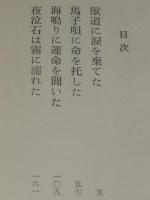 目次
獣道に涙を棄てた 五
馬子唄に命を托した 五七
海鳴りに運命を聞いた 一〇九
夜泣石は霧に濡れた 一六一